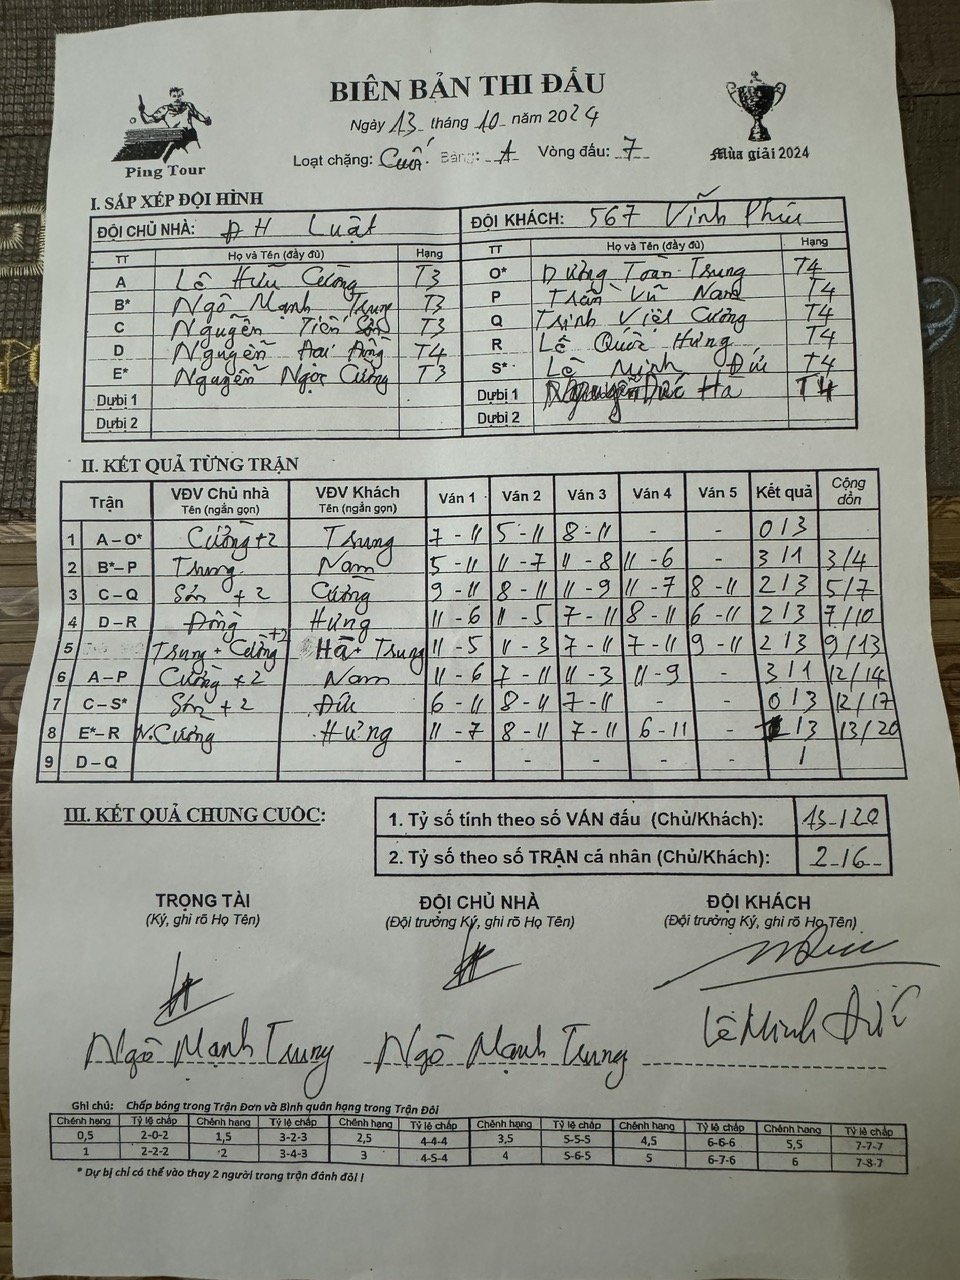 BIÊN BẢN THI ĐẤU
Ngày 13 tháng 10 năm 2024
Loạt chặng: Cuối Bảng: A Vòng đấu: 7
Ping Tour
Mùa giải 2024
I. SẮP XẾP ĐỘI HÌNH
ĐỘI CHỦ NHÀ: ĐH Luật ĐỘI KHÁCH: 567 Vĩnh Phúc
TT Họ và Tên (đầy đủ) Hạng TT Họ và Tên (đầy đủ) Hạng
A Lê Hữu Cường T3 O* Dương Toàn Trung T4
B* Ngô Mạnh Trung T3 P Trần Vũ Nam T4
C Nguyễn Tiến Sơn T3 Q Trịnh Việt Cường T4
D Nguyễn Đông T4 R Lê Quốc Hưng T4
E* Nguyễn Ngọc Cường T3 S* Lê Minh Đức T4
Dự bị 1 Dự bị 1 Nguyễn Đức Hà T4
Dự bị 2 Dự bị 2
II. KẾT QUẢ TỪNG TRẬN
Trận VĐV Chủ nhà Tên (ngắn gọn) VĐV Khách Tên (ngắn gọn) Ván 1 Ván 2 Ván 3 Ván 4 Ván 5 Kết quả Cộng dồn
1 A – O* Cường +2 Trung 7 - 11 5 - 11 8 - 11 - - 0 / 3
2 B* – P Trung Nam 5 - 11 11 - 7 11 - 8 11 - 6 - 3 / 1 3/4
3 C – Q Sơn +2 Cường 9 - 11 8 - 11 11 - 9 11 - 7 8 - 11 2 / 3 5/7
4 D – R Đông Hưng 11 - 6 11 - 5 7 - 11 8 - 11 6 - 11 2 / 3 7/10
5 Trung + Cường +2 Hà + Trung 11 - 5 11 - 3 7 - 11 7 - 11 9 - 11 2 / 3 9/13
6 A – P Cường +2 Nam 11 - 6 7 - 11 11 - 3 11 - 9 - 3 / 1 12/14
7 C – S* Sơn +2 Đức 6 - 11 8 - 11 7 - 11 - - 0 / 3 12/17
8 E* – R N.Cường Hưng 11 - 7 8 - 11 7 - 11 6 - 11 - 1 / 3 13/20
9 D – Q - - - - - /
III. KẾT QUẢ CHUNG CUỘC:
1. Tỷ số tính theo số VÁN đấu (Chủ/Khách): 13 / 20
2. Tỷ số theo số TRẬN cá nhân (Chủ/Khách): 2 / 6
TRỌNG TÀI ĐỘI CHỦ NHÀ ĐỘI KHÁCH
(Ký, ghi rõ Họ Tên) (Đội trưởng Ký, ghi rõ Họ Tên) (Đội trưởng Ký, ghi rõ Họ Tên)
Ngô Mạnh Trung Ngô Mạnh Trung Lê Minh Đức
Ghi chú: Chấp bóng trong Trận Đơn và Bình quân hạng trong Trận Đôi
Chênh hạng Tỷ lệ chấp Chênh hạng Tỷ lệ chấp Chênh hạng Tỷ lệ chấp Chênh hạng Tỷ lệ chấp Chênh hạng Tỷ lệ chấp Chênh hạng Tỷ lệ chấp
0,5 2-0-2 1,5 3-2-3 2,5 4-4-4 3,5 5-5-5 4,5 6-6-6 5,5 7-7-7
1 2-2-2 2 3-4-3 3 4-5-4 4 5-6-5 5 6-7-6 6 7-8-7
* Dự bị chỉ có thể vào thay 2 người trong trận đánh đôi !